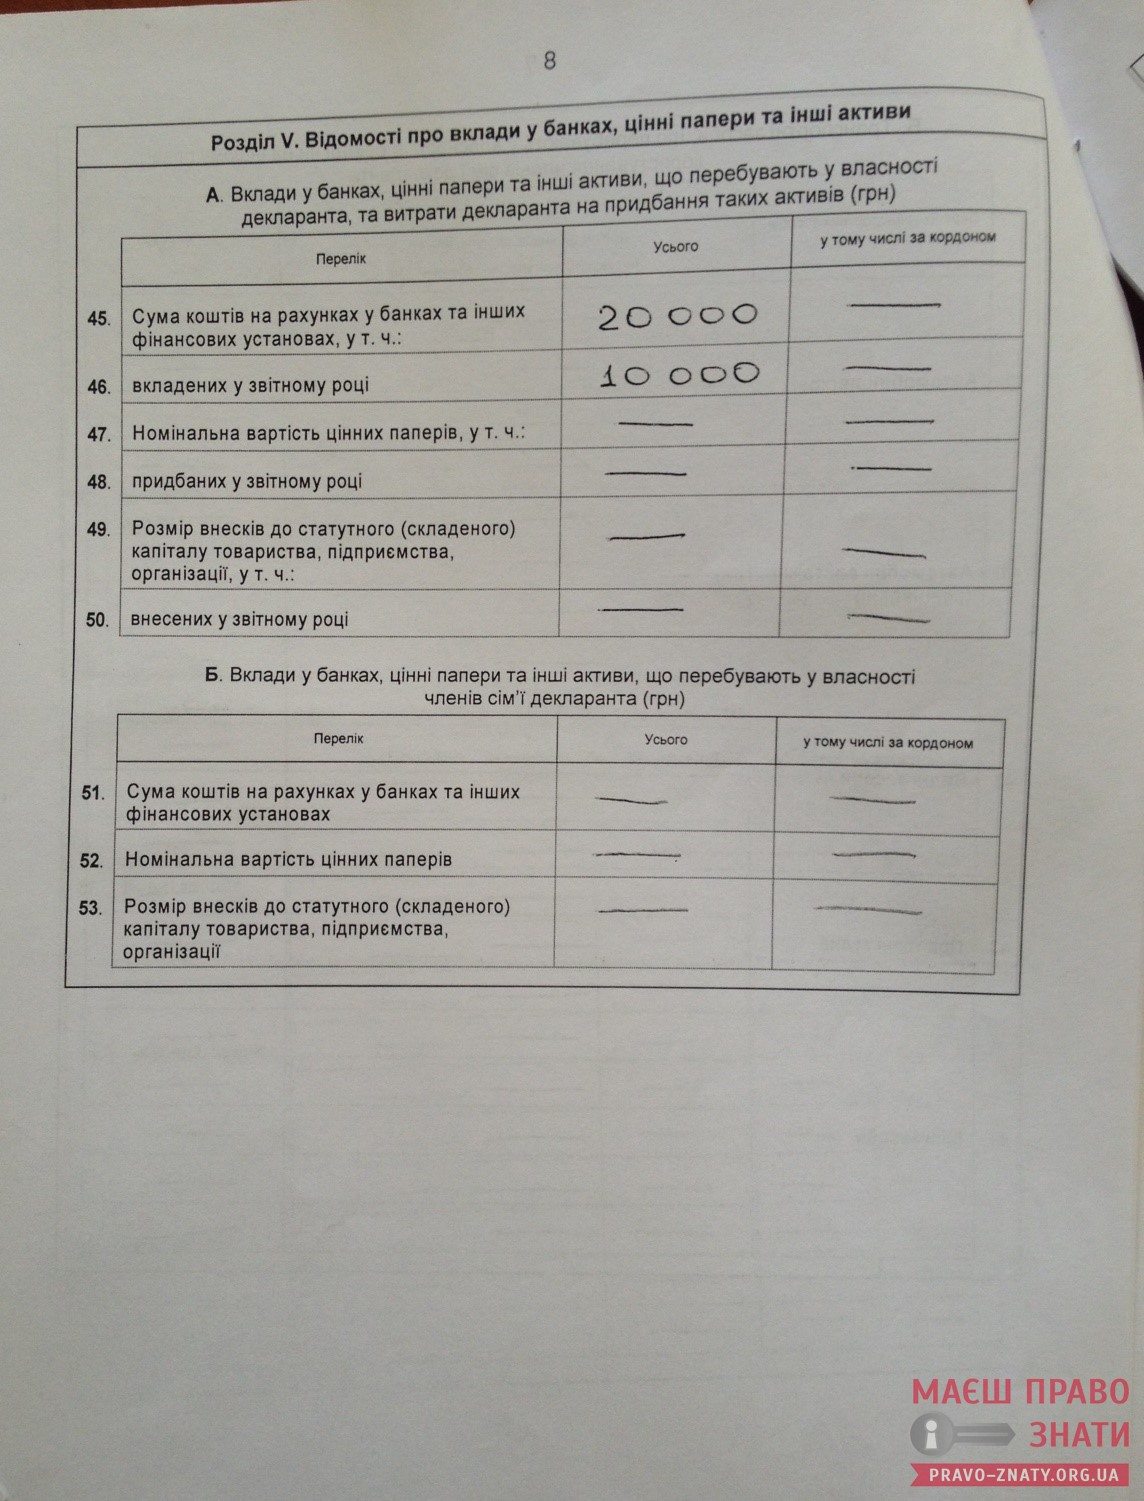 8
Розділ V. Відомості про вклади у банках, цінні папери та інші активи
А. Вклади у банках, цінні папери та інші активи, що перебувають у власності
декларанта, та витрати декларанта на придбання таких активів (грн)
Перелік Усього у тому числі за кордоном
45. Сума коштів на рахунках у банках та інших
фінансових установах, у т. ч.: 20 000 —
46. вкладених у звітному році 10 000 —
47. Номінальна вартість цінних паперів, у т. ч.: — —
48. придбаних у звітному році — —
49. Розмір внесків до статутного (складеного)
капіталу товариства, підприємства,
організації, у т. ч.: — —
50. внесених у звітному році — —
Б. Вклади у банках, цінні папери та інші активи, що перебувають у власності
членів сім’ї декларанта (грн)
Перелік Усього у тому числі за кордоном
51. Сума коштів на рахунках у банках та інших
фінансових установах — —
52. Номінальна вартість цінних паперів — —
53. Розмір внесків до статутного (складеного)
капіталу товариства, підприємства,
організації — —
МАЄШ ПРАВО
ЗНАТИ
PRAVO-ZNATY.ORG.UA